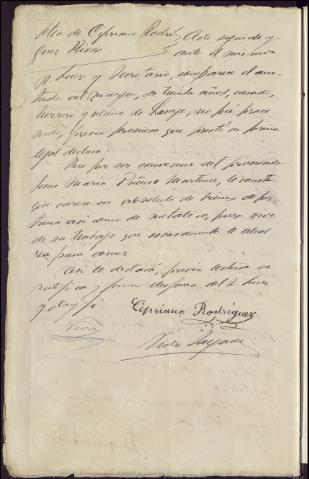 de Cipriano Rodri- Acto seguido y
guez Rios ante el mismo
Sr Juez y Secretario, comparece el ano-
tado al margen, de treinta años, casado,
herrero y vecino de no fué proce-
sado, previa promesa que prestó en forma
legal declaró:
Que por ser convecino del procesado
José María Piñeiro Martinez, le consta
que carece en absoluto de bienes de for-
tuna asi como de metalico, pues vive
de su trabajo que escasamente le alcan-
za para comer
Asi lo declaró, previa lectura se
ratifica y firma despues del Sr Juez
y doy fé
Cipriano Rodríguez